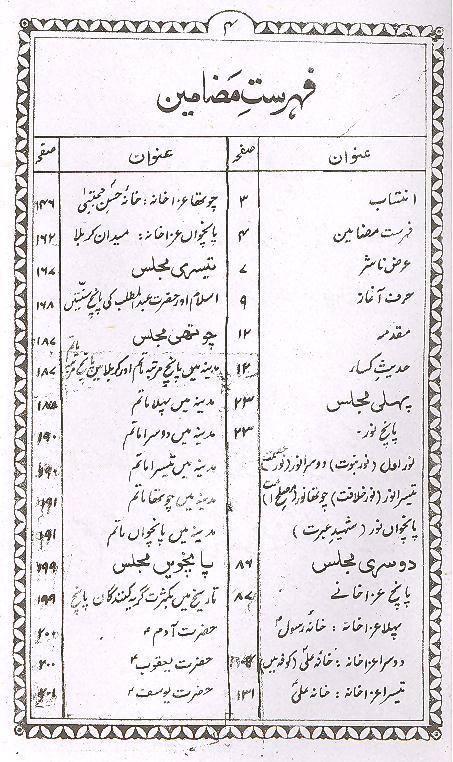 ۴
فہرستِ مَضامین
عنوان صفحہ
انتساب ۳
فہرست مضامین ۴
عرض ناشر ۷
حرف آغاز ۹
مقدمہ ۱۲
حدیثِ کساء ۱۲
پہلی مجلس ۲۳
پانچ نور۔ ۲۳
نور اول (نور نبوت) دوسرا نور (نور عصمت)
تیسرا نور (نور خلافت) چوتھا نور
پانچواں نور (شہید عبرت)
دوسری مجلس ۸۶
پانچ عزاخانے ۸۷
پہلا عزاخانہ : خانۂ رسولؐ
دوسرا عزاخانہ : خانۂ علیؑ (کوفہ میں)
تیسرا عزاخانہ : خانہ علیؑ ۱۳۱
عنوان صفحہ
چوتھا عزاخانہ : خانۂ حسنِ مجتبیٰ ۱۴۶
پانچواں عزاخانہ : میدان کربلا ۱۶۲
تیسری مجلس ۱۶۷
اسلام اور حضرت عبدالمطلب کی پانچ سنتیں ۱۶۸
چوتھی مجلس ۱۸۷
مدینہ میں پانچ مرتبہ ماتم اور کربلا میں پانچ مرتبہ ماتم ۱۸۷
مدینہ میں پہلا ماتم
مدینہ میں دوسرا ماتم ۱۹۰
مدینہ میں تیسرا ماتم
مدینہ میں چوتھا ماتم ۱۹۱
مدینہ میں پانچواں ماتم ۱۹۱
پانچویں مجلس ۱۹۹
تاریخ میں بکثرت گریہ کنندگان پانچ ۱۹۹
حضرت آدمؑ ۲۰۰
حضرت یعقوبؑ ۲۰۰
حضرت یوسفؑ ۲۰۱